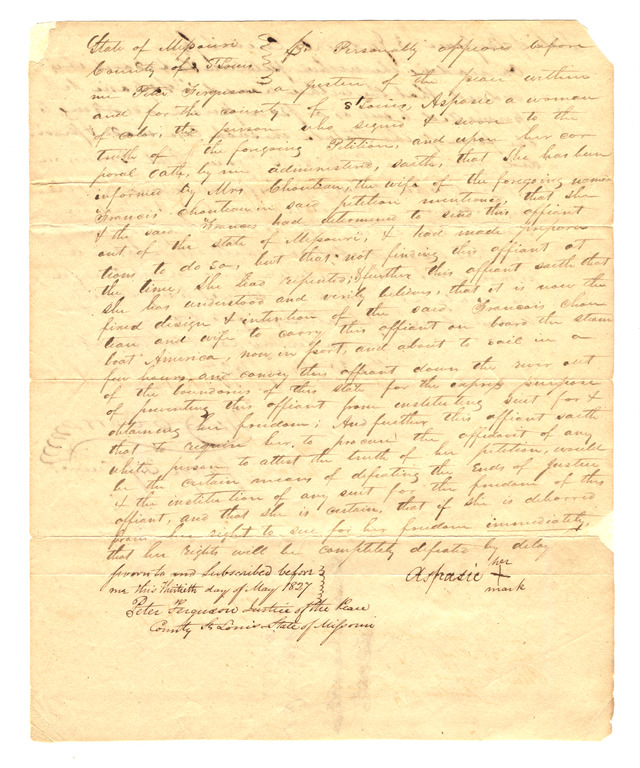 State of Missouri } Ss. Personally appeared before
County of St Louis
me Peter Ferguson a Justice of the peace within
and for the county of St Louis, Aspasie a woman
of color, the person who signed & swore to the
truth of the foregoing Petition, and upon her cor
poral oath, by me administered, saith, that she has been
informed by Mrs Chouteau, the wife of the foregoing named
Francois Chouteau in said petition mentioned, that she
& the said Francois had determined to send this affiant
out of the state of Missouri, & had made prepara
tions to do so, but that not finding this affiant at
the time, she had repented; & further this affiant saith that
she has understood and verily believes, that it is now the
fixed design & intention of the said Francois Chou
teau and wife to carry this affiant on board the steam
boat America, now in port, and about to sail in a
few hours, and convey this affiant down the river out
of the boundaries of this state for the express purpose
of preventing this affiant from instituting suit for &
obtaining her freedom; And further this affiant saith
that to require her to procure the affidavit of any
white person to attest the truth of her petition, would
be the certain means of defeating the Ends of Justice
& the institution of any suit for the freedom of this
affiant, and that she is certain, that if she is debarred
from her right to sue for her freedom immediately,
that her rights will be completely defeated by delay
Sworn to and Subscribed before
me this thirtieth day of May 1827
Peter Ferguson Justice of the Peace
County St Louis State of Missouri
her
Aspasie +
mark